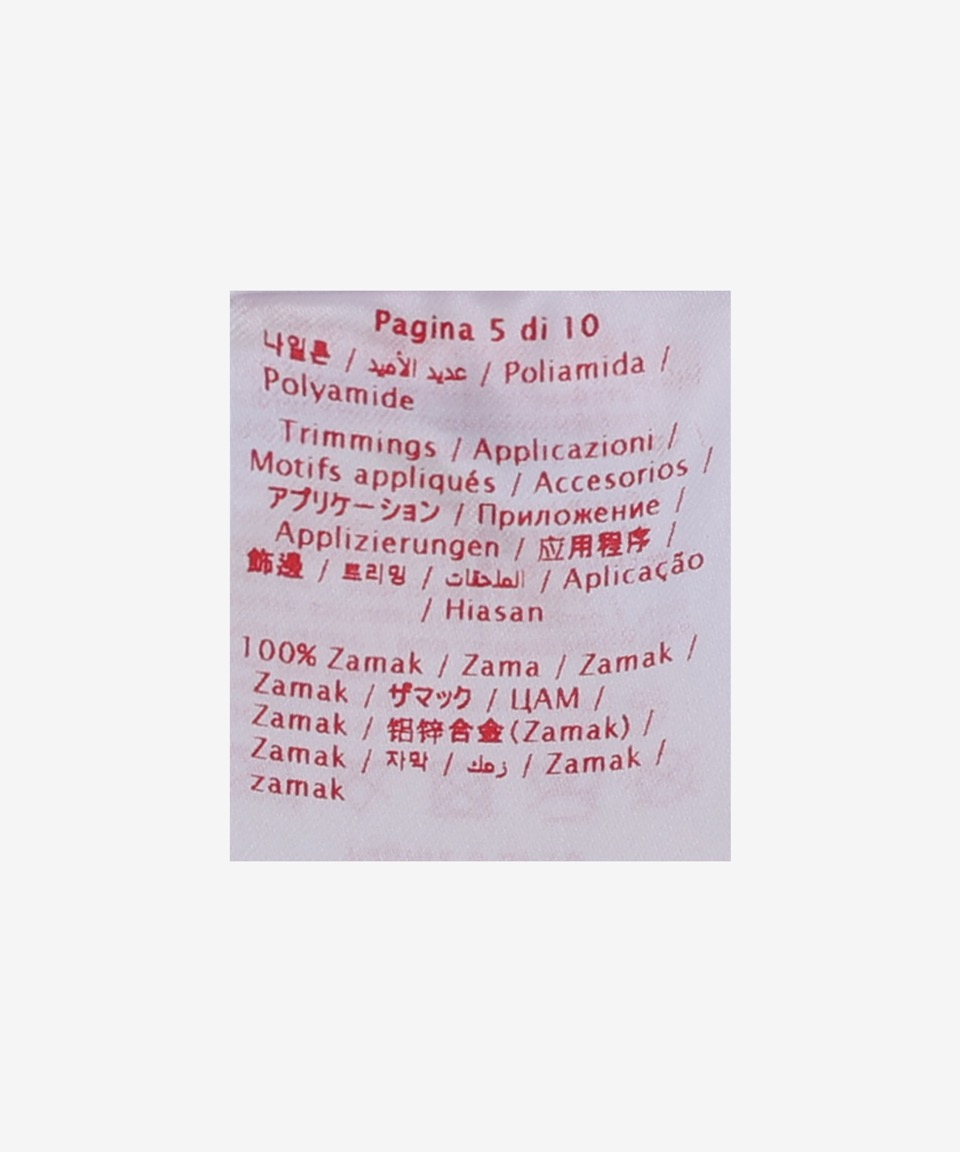 Pagina 5 di 10
나일론 / عديد الأميد / Poliamida /
Polyamide
Trimmings / Applicazioni /
Motifs appliqués / Accesorios /
アプリケーション / Приложение /
Applizierungen / 应用程序 /
飾邊 / 트리밍 / الملحقات / Aplicação
/ Hiasan
100% Zamak / Zama / Zamak /
Zamak / ザマック / ЦАМ /
Zamak / 铝锌合金(Zamak) /
Zamak / 자막 / زمك / Zamak /
zamak